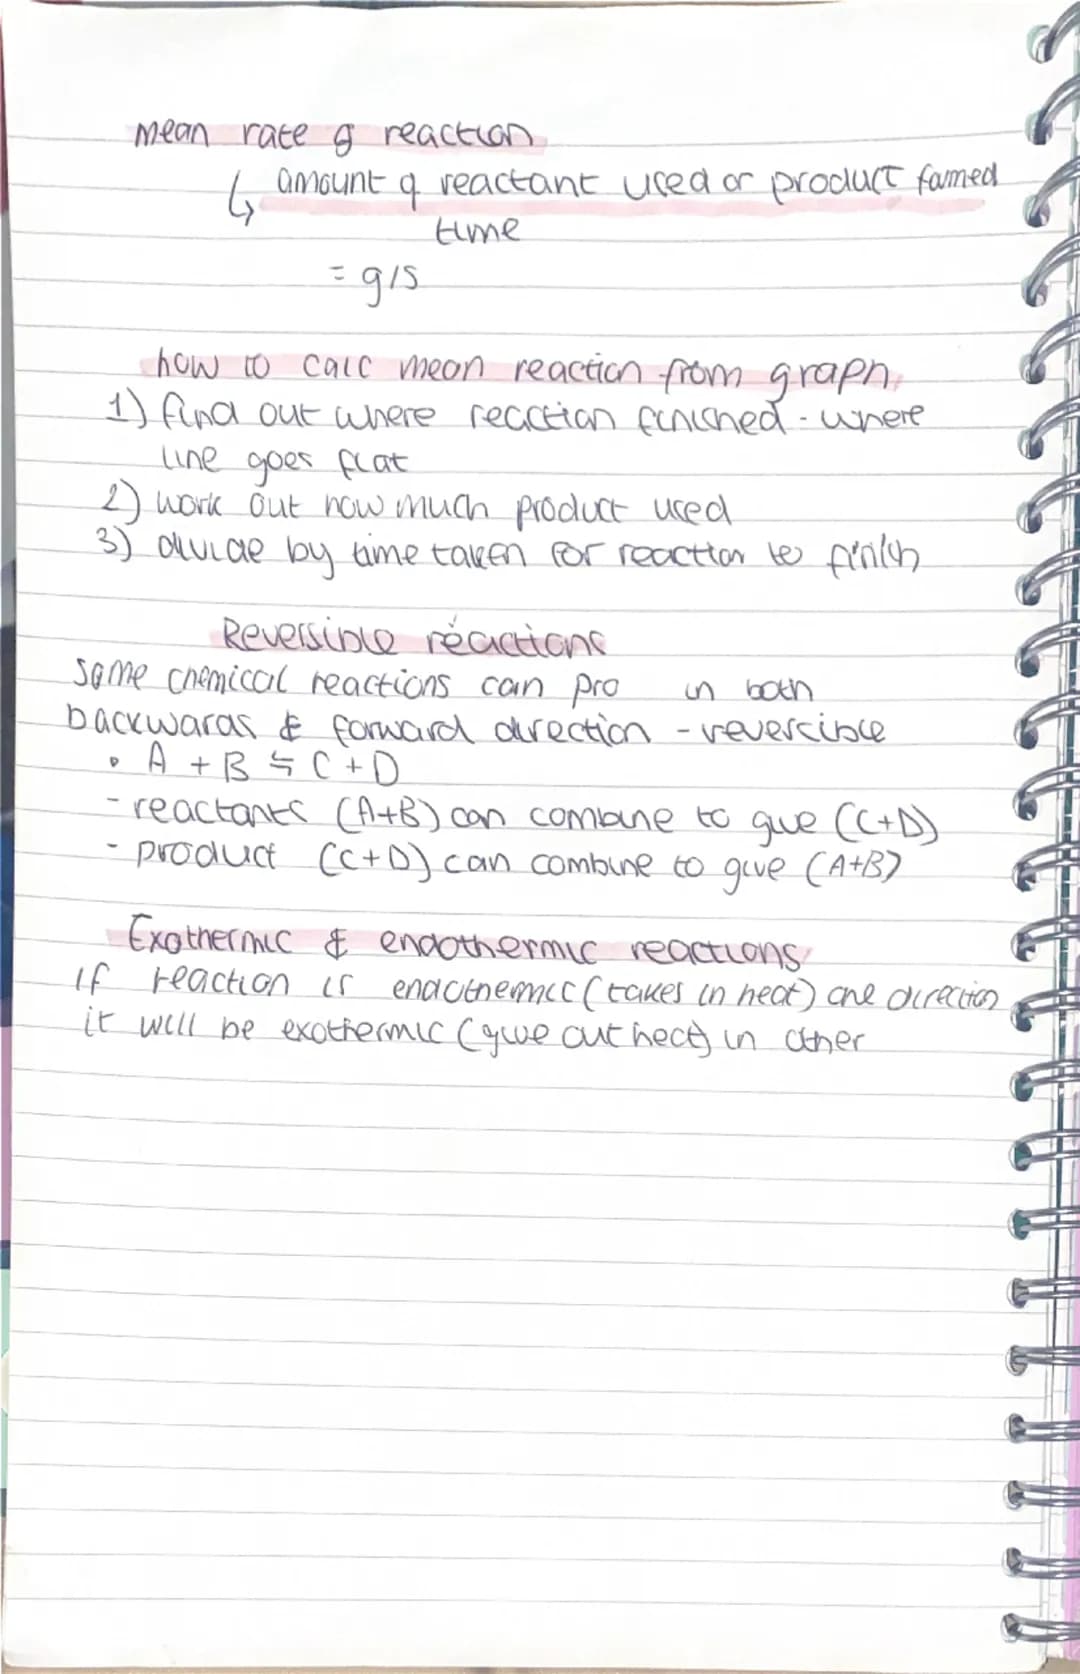 mean rate of reaction
↳ amount of reactant used or product formed
time
= g/s
how to calc mean reaction from graph.
1) find out where reaction finished - where
line goes flat
2) work out how much product used
3) divide by time taken for reaction to finish
Reversible reactions
some chemical reactions can pro in both
backwards & forward direction - reversible
• A + B ⇋ C + D
- reactants (A+B) can combine to give (C+D)
- product (C+D) can combine to give (A+B)
Exothermic & endothermic reactions
if reaction is endothermic (takes in heat) one direction
it will be exothermic (give out heat) in other